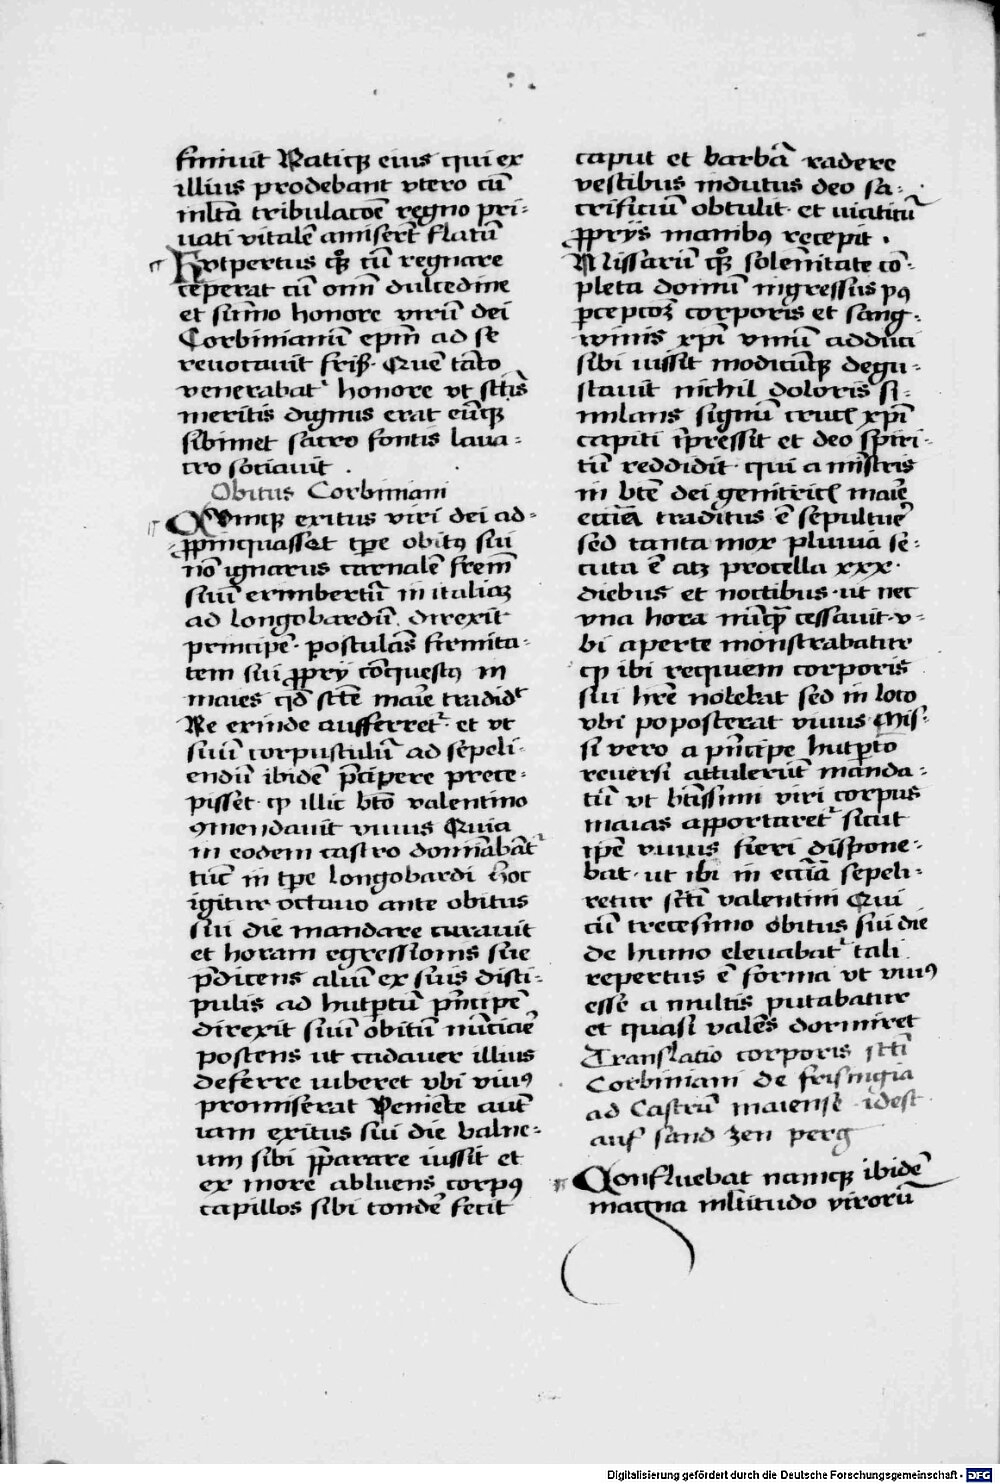 finiuit Natiqꝫ eius qui ex
illius prodebant vtero cū
ml̄ta tribulacōe regno pri-
uati vitalē amiserūt flatū
Hutpertus qꝫ cū regnare
ceperat cū omī dulcedine
et sūmo honore virū dei
Corbinianū ep̄m ad se
reuocauit fris̄. Quē tāto
venerabatꝰ honore vt sc̄tis
meritis dignus erat eūqꝫ
sibimet sacro fontis laua-
cro sociauit .
Obitus Corbiniani
Cumqꝫ exitus viri dei ad-
ꝓpinquasset tp̄e obitꝰ sui
nō ignarus carnalē frēm
suū erimbertū in italiaꝫ
ad longobardū. direxit
principē. postulās firmita-
tem sui ꝓprij cōquestus in
maies qd̄ sc̄te marie tradidᷓ
Ne exinde aufferretᷓ. et vt
suū corpusculū ad sepeli-
endū ibidē p̄cipere prece-
pisset. qꝫ illic bt̄o valentino
ꝯmendauit viuus Quia
in eodem castro domīabātᷓ
tūc in tp̄e longobardi Hoc
igitur octauo ante obitus
sui die mandare curauit
et horam egressionis sue
p̄dicens aliū ex suis disci-
pulis ad hutptū p̄ncipē
direxit suū obitū nūciare
poscens ut cadauer illius
deferre iuberet vbi viuꝰ
promiserat Veniēte aut̄
iam exitus sui die balne-
um sibi p̄parare iussit et
ex more abluens corpꝰ
capillos sibi tondē fecit
caput et barbā radere
vestibus indutus deo sa-
crificiū obtulit. et uiaticū
ꝓprijs manibꝰ recepit .
Missarū qꝫ solemnitate cō-
pleta domū ingressus pꝰ
ꝑcepcōꝫ corporis et sang-
winis xp̄i vinū adduci
sibi iussit modicūqꝫ degu-
stauit nichil doloris si-
milans signū crucis xp̄i
capiti īpressit et deo spiri-
tū reddidit. qui a mīstris
in bt̄e dei genitricis marie
ecc̄ia traditus ē sepulture
sed tanta mox pluuia se-
cuta ē atqꝫ procella xxx.
diebus et noctibus. ut nec
vna hora nūq̄ cessauit. v-
bi aperte monstrabatur
qꝫ ibi requiem corporis
sui hr̄e nolebat sed in loco
vbi poposcerat viuus. Mis-
si vero a p̄ncipe hutꝑto
reuersi attulerūt manda-
tū vt bt̄issimi viri corpus
maias apportaretᷓ sicut
ip̄e viuus fieri dispone-
bat. ut ibi in ecc̄ia sepeli-
retur sc̄ti valentini Qui
cū trecesimo obitus sui die
de humo eleuabatᷓ tali
repertus ē forma vt viuꝰ
esse a multis putabatur
et quasi valēs dormiret
Translatio corporis sc̄ti
Corbiniani de frisingia
ad Castrū maiense. idest
auf sand zen perg
Confluebat namqꝫ ibidē
magna ml̄titudo virorū
Digitalisierung gefördert durch die Deutsche Forschungsgemeinschaft - DFG